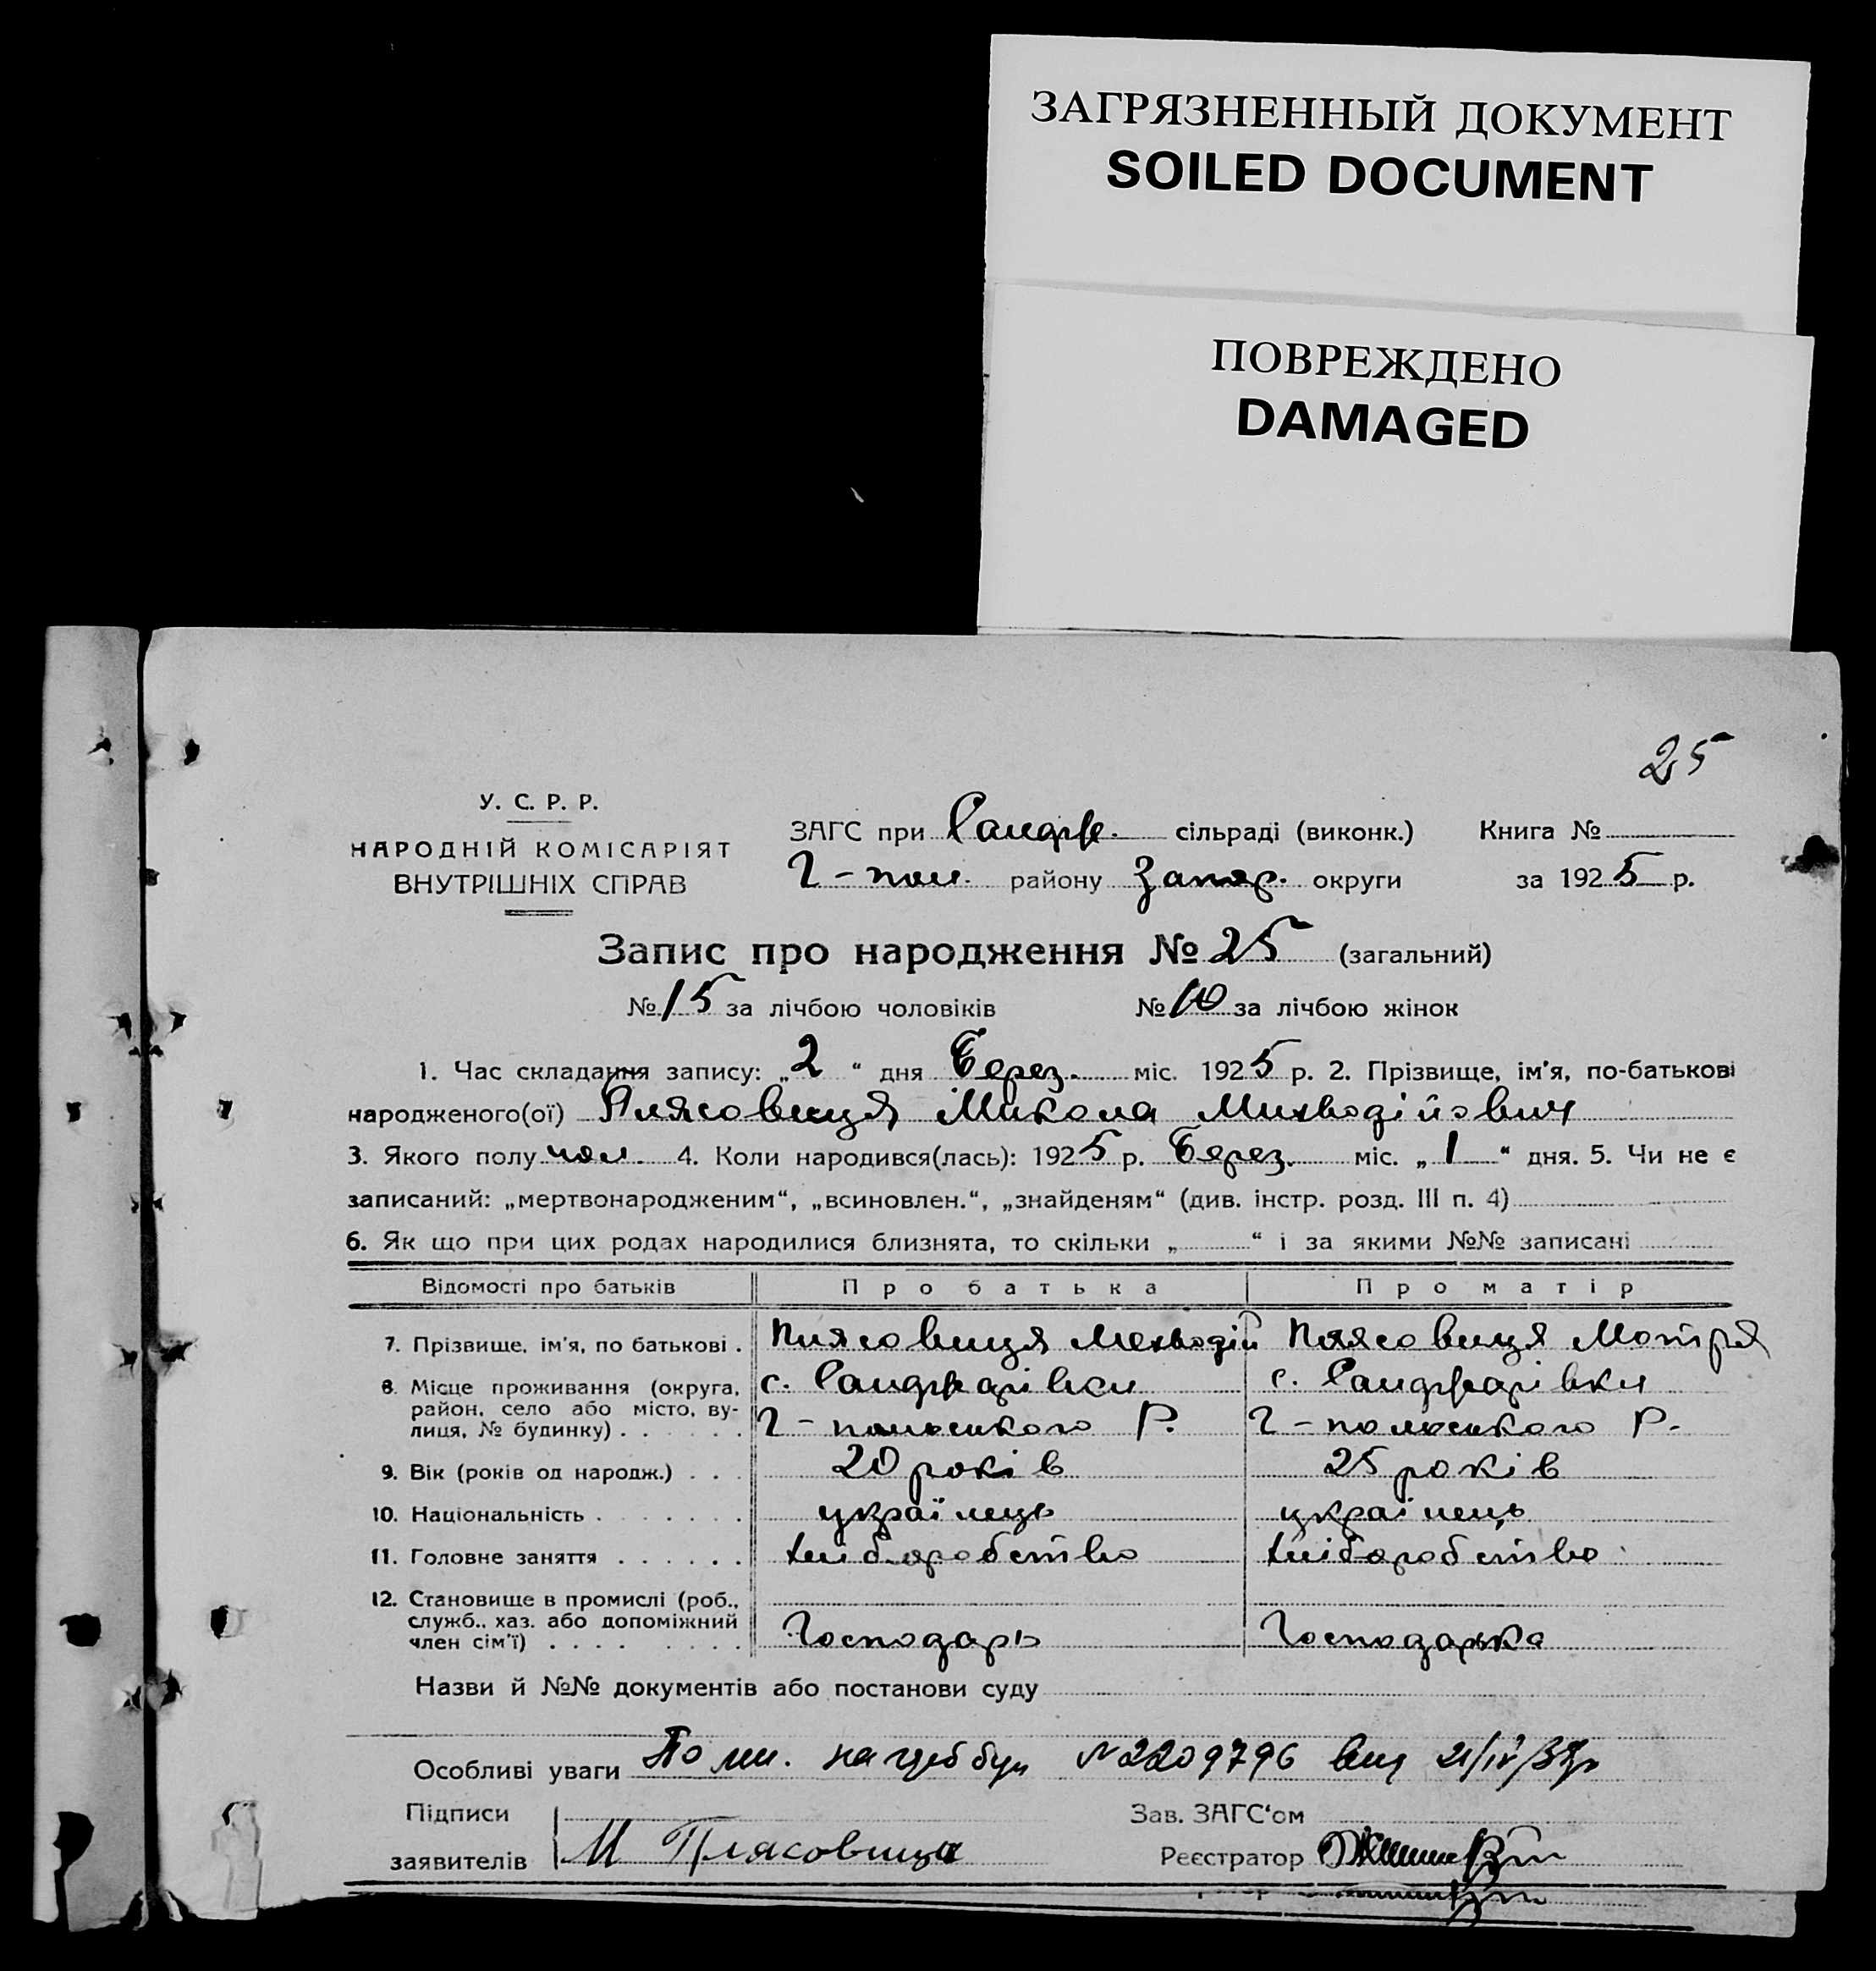 ЗАГРЯЗНЕННЫЙ ДОКУМЕНТ
SOILED DOCUMENT
ПОВРЕЖДЕНО
DAMAGED
25
У. С. Р. Р.
НАРОДНІЙ КОМІСАРІЯТ
ВНУТРІШНІХ СПРАВ
ЗАГС при сільраді (виконк.) Книга №
Г-пол. району Запор. округи за 1925 р.
Запис про народження № 25 (загальний)
№ 15 за лічбою чоловіків № 10 за лічбою жінок
1. Час складання запису: „2“ дня Берез. міс. 1925 р. 2. Прізвище, ім'я, по-батькові
народженого(ої) Плясовиця Микола Михводійович
3. Якого полу чол. 4. Коли народився(лась): 1925 р. Берез. міс. „1“ дня. 5. Чи не є
записаний: „мертвонародженим“, „всиновлен.“, „знайденям“ (див. інстр. розд. III п. 4)
6. Як що при цих родах народилися близнята, то скільки „ “ і за якими №№ записані
Відомості про батьків Про батька Про матір
7. Прізвище, ім'я, по батькові . Плясовиця Мехводій Плясовиця Мотря
8. Місце проживання (округа, район, село або місто, ву-лиця, № будинку) . . . . . .
с. с.
Г-польського Р. Г-польського Р.
9. Вік (років од народж.) . . . 20 років 25 років
10. Національність . . . . . . . українець українець
11. Головне заняття . . . . . . хліборобство хліборобство
12. Становище в промислі (роб., служб., хаз. або допоміжний член сім'ї) . . . . . . . . Господарь Господарька
Назви й №№ документів або постанови суду
Особливі уваги № 2209796 21/IV/
Підписи
заявителів М Плясовица
Зав. ЗАГС'ом
Реєстратор